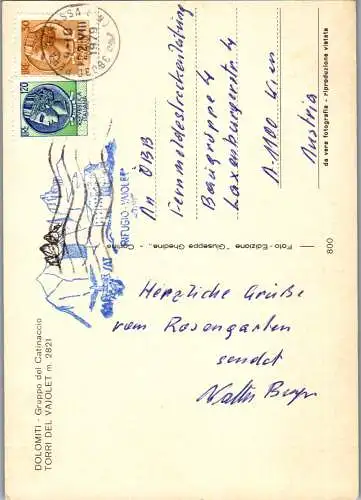 DOLOMITI - Gruppo del Catinaccio
TORRI DEL VAJOLET m. 2821
Herzliche Grüße
vom Rosengarten
sendet
1979
120
RIFUGIO VAJOLET
SAT
Foto-Edizione "Giuseppe Ghedina"
An ÖBB
Fernmeldestreckenleitung
Baugruppe 4
Laxenburgerstr. 4
A-1100 Wien
Austria
800
da vera fotografia - riproduzione vietata